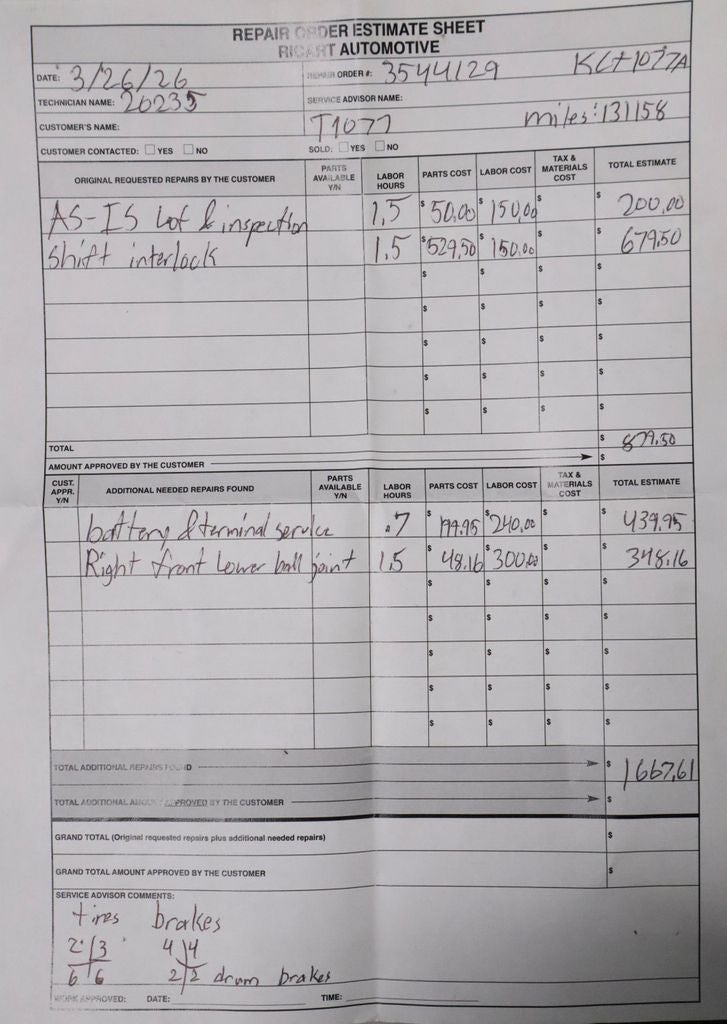 REPAIR ORDER ESTIMATE SHEET
RICART AUTOMOTIVE
DATE: 3/26/26 REPAIR ORDER #: 3544129 KLT1077A
TECHNICIAN NAME: 20235 SERVICE ADVISOR NAME:
CUSTOMER'S NAME: T1077 miles: 131158
CUSTOMER CONTACTED: ☐ YES ☐ NO SOLD: ☐ YES ☐ NO
ORIGINAL REQUESTED REPAIRS BY THE CUSTOMER PARTS AVAILABLE Y/N LABOR HOURS PARTS COST LABOR COST TAX & MATERIALS COST TOTAL ESTIMATE
AS-IS Lot & inspection 1.5 $50.00 $150.00 $ $200.00
Shift interlock 1.5 $529.50 $150.00 $ $679.50
$ $ $ $
$ $ $ $
$ $ $ $
$ $ $ $
$ $ $ $
TOTAL $879.50
AMOUNT APPROVED BY THE CUSTOMER $
CUST. APPR. Y/N ADDITIONAL NEEDED REPAIRS FOUND PARTS AVAILABLE Y/N LABOR HOURS PARTS COST LABOR COST TAX & MATERIALS COST TOTAL ESTIMATE
battery & terminal service .7 $199.95 $240.00 $ $439.95
Right front Lower ball joint 1.5 $48.16 $300.00 $ $348.16
$ $ $ $
$ $ $ $
$ $ $ $
$ $ $ $
$ $ $ $
TOTAL ADDITIONAL REPAIRS FOUND $1667.61
TOTAL ADDITIONAL AMOUNT APPROVED BY THE CUSTOMER $
GRAND TOTAL (Original requested repairs plus additional needed repairs) $
GRAND TOTAL AMOUNT APPROVED BY THE CUSTOMER $
SERVICE ADVISOR COMMENTS:
tires brakes
2 3 4 4
6 6 2 2 drum brakes
WORK APPROVED: DATE: TIME: